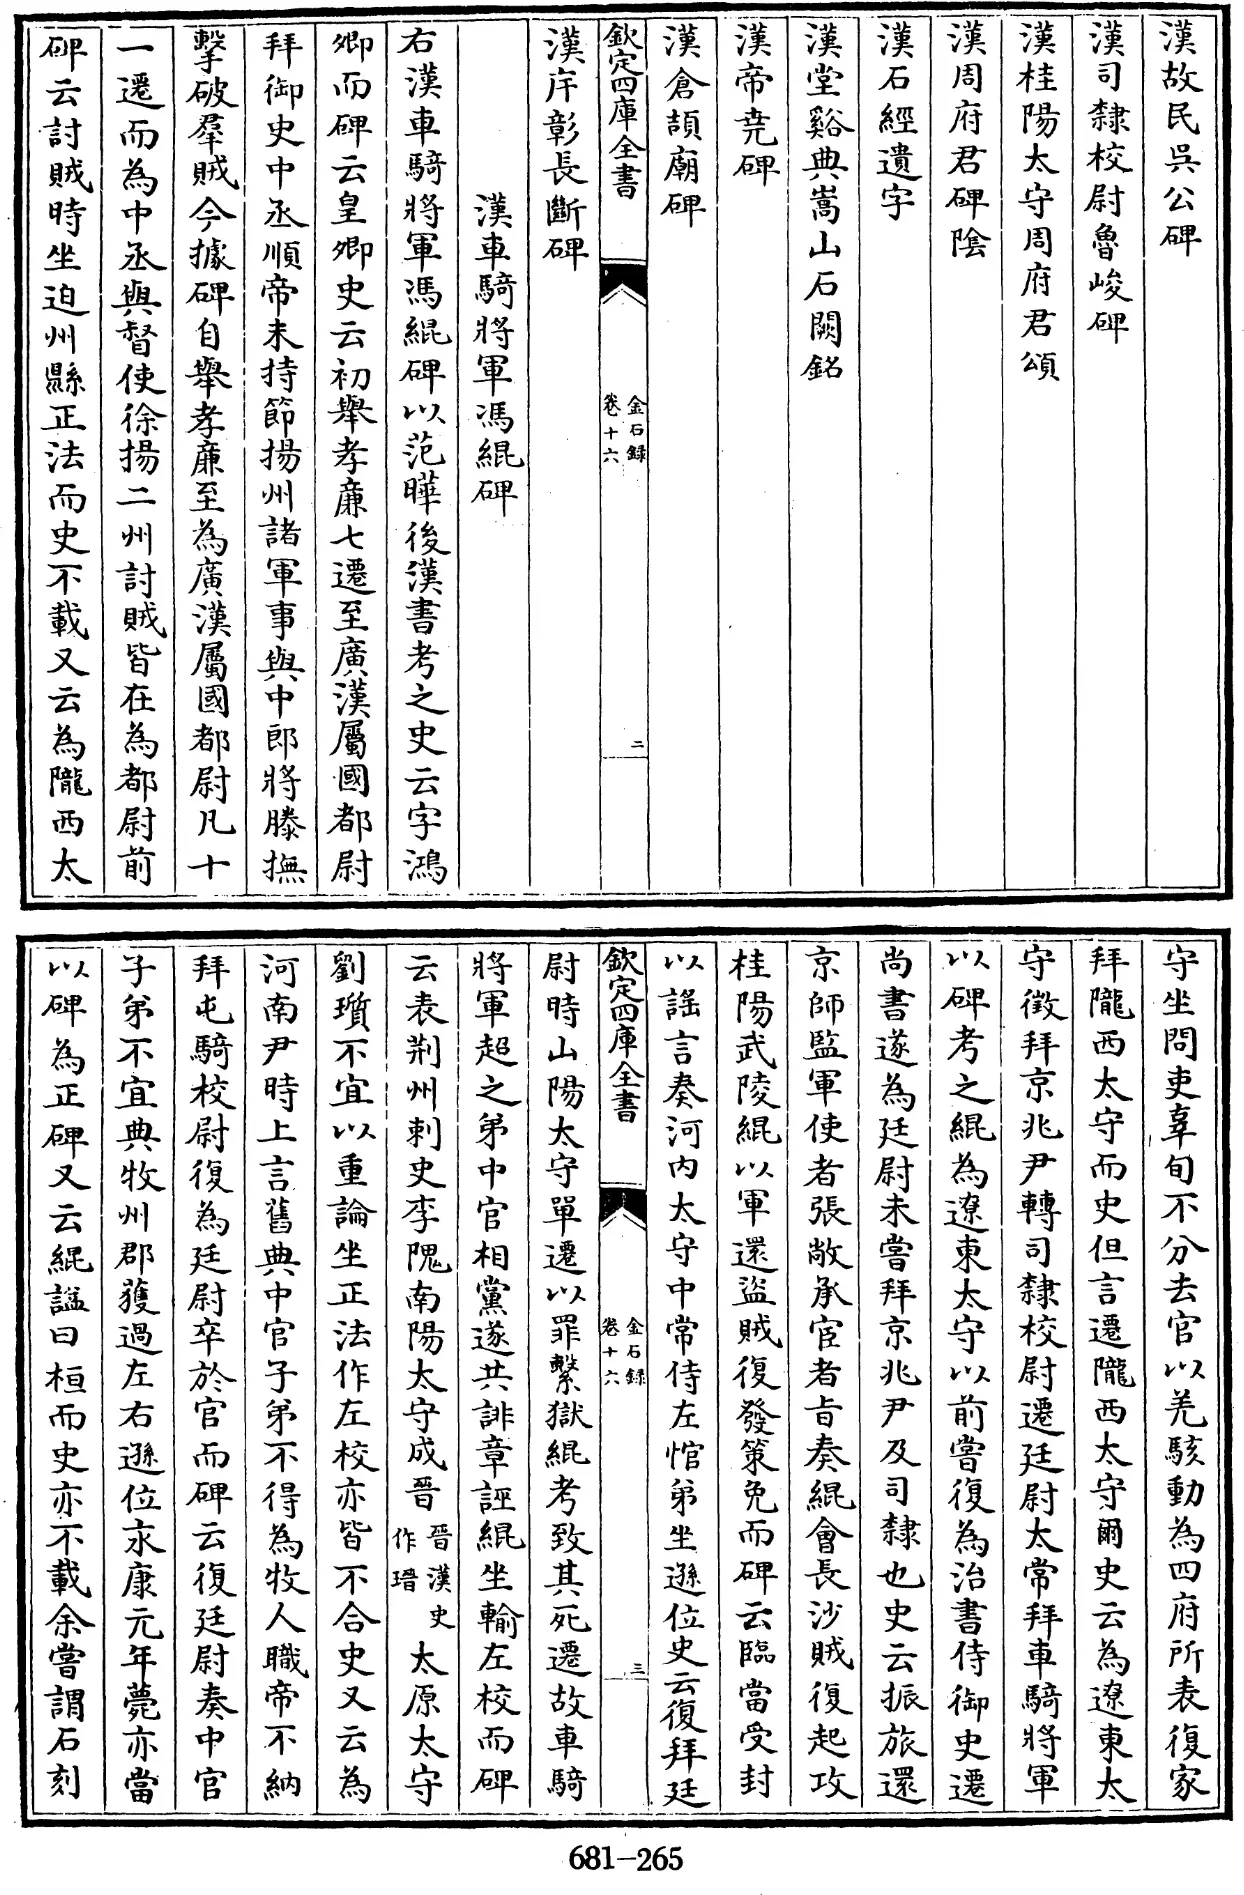 漢故民吳公碑
漢司隸校尉魯峻碑
漢桂陽太守周府君頌
漢周府君碑陰
漢石經遺字
漢堂谿典嵩山石闕銘
漢帝堯碑
漢倉頡廟碑
欽定四庫全書
金石録
卷十六
二
漢庁彰長斷碑
漢車騎將軍馮緄碑
右漢車騎將軍馮緄碑以范曄後漢書考之史云字鴻
卿而碑云皇卿史云初舉孝廉七遷至廣漢屬國都尉
拜御史中丞順帝末持節揚州諸軍事與中郎將滕撫
擊破羣賊今據碑自舉孝廉至為廣漢屬國都尉凡十
一遷而為中丞與督使徐揚二州討賊皆在為都尉前
碑云討賊時坐迫州縣正法而史不載又云為隴西太
守坐問吏辜旬不分去官以羌駭動為四府所表復家
拜隴西太守而史但言遷隴西太守爾史云為遼東太
守徵拜京兆尹轉司隸校尉遷廷尉太常拜車騎將軍
以碑考之緄為遼東太守以前嘗復為治書侍御史遷
尚書遂為廷尉未嘗拜京兆尹及司隸也史云振旅還
京師監軍使者張敞承宦者旨奏緄會長沙賊復起攻
桂陽武陵緄以軍還盜賊復發策免而碑云臨當受封
以謠言奏河內太守中常侍左悺弟坐遜位史云復拜廷
欽定四庫全書
金石録
卷十六
三
尉時山陽太守單遷以罪繫獄緄考致其死遷故車騎
將軍超之弟中官相黨遂共誹章誣緄坐輸左校而碑
云表荆州刺史李隗南陽太守成晉晉漢史作瑨太原太守
劉瓆不宜以重論坐正法作左校亦皆不合史又云為
河南尹時上言舊典中官子弟不得為牧人職帝不納
拜屯騎校尉復為廷尉卒於官而碑云復廷尉奏中官
子弟不宜典牧州郡獲過左右遜位永康元年薨亦當
以碑為正碑又云緄謚曰桓而史亦不載余嘗謂石刻
681-265